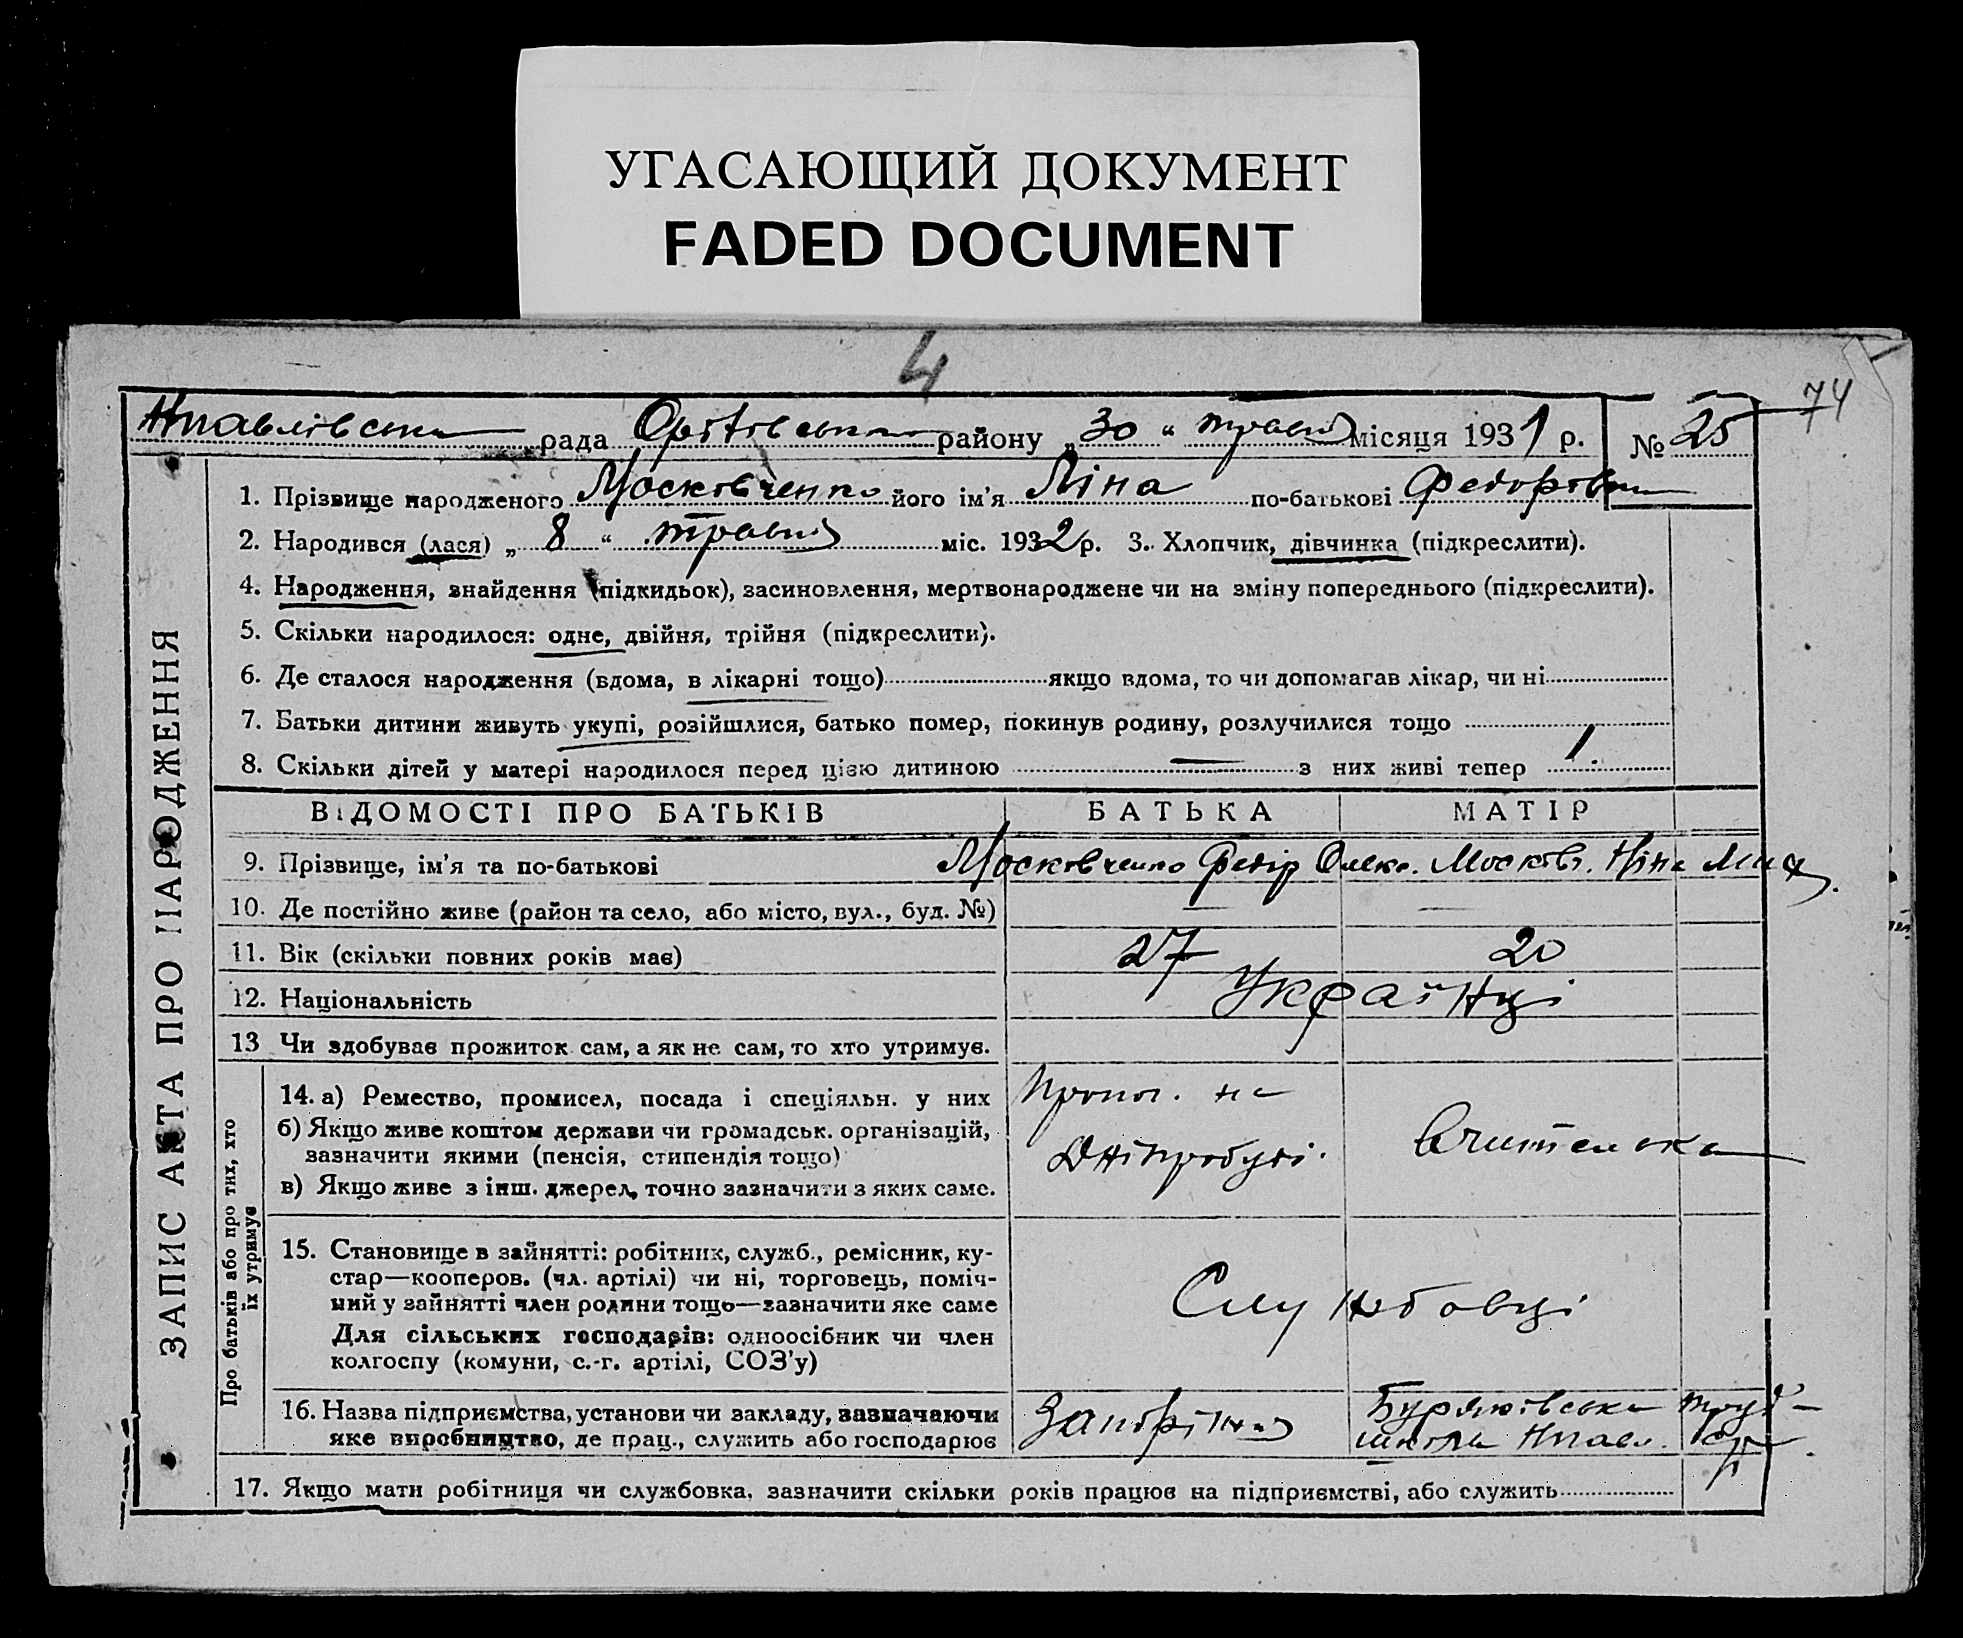 УГАСАЮЩИЙ ДОКУМЕНТ
FADED DOCUMENT
4
74
Нпавлівська рада Оріхівського району „30“ травня місяця 1931 р. № 25
ЗАПИС АКТА ПРО НАРОДЖЕННЯ
1. Прізвище народженого Московченко його ім'я Ліна по-батькові Федорівна
2. Народився (лася) „8“ травня міс. 1932 р. 3. Хлопчик, дівчинка (підкреслити).
4. Народження, знайдення (підкидьок), засиновлення, мертвонароджене чи на зміну попереднього (підкреслити).
5. Скільки народилося: одне, двійня, трійня (підкреслити).
6. Де сталося народження (вдома, в лікарні тощо) якщо вдома, то чи допомагав лікар, чи ні
7. Батьки дитини живуть укупі, розійшлися, батько помер, покинув родину, розлучилися тощо
8. Скільки дітей у матері народилося перед цією дитиною — з них живі тепер 1.
ВІДОМОСТІ ПРО БАТЬКІВ БАТЬКА МАТІР
9. Прізвище, ім'я та по-батькові Московченко Федір Олекс. Московч. Ніна
10. Де постійно живе (район та село, або місто, вул., буд. №) — —
11. Вік (скільки повних років має) 27 20
12. Національність Українці
13 Чи здобуває прожиток сам, а як не сам, то хто утримує.
Про батьків або про тих, хто
їх утримує
14. а) Ремество, промисел, посада і спеціяльн. у них
б) Якщо живе коштом держави чи громадськ. організацій,
зазначити якими (пенсія, стипендія тощо)
в) Якщо живе з інш. джерел, точно зазначити з яких саме.
на
Дніпробуді.
Вчителька
15. Становище в зайнятті: робітник, служб., ремісник, ку-
стар—кооперов. (чл. артілі) чи ні, торговець, поміч-
ний у зайнятті член родини тощо—зазначити яке саме
Для сільських господарів: одноосібник чи член
колгоспу (комуни, с.-г. артілі, СОЗ'у)
Службовці
16. Назва підприємства, установи чи закладу, зазначаючи
яке виробництво, де прац., служить або господарює
Запоріжжя
Буряківська труд-
школа Нпавл.
17. Якщо мати робітниця чи службовка, зазначити скільки років працює на підприємстві, або служить